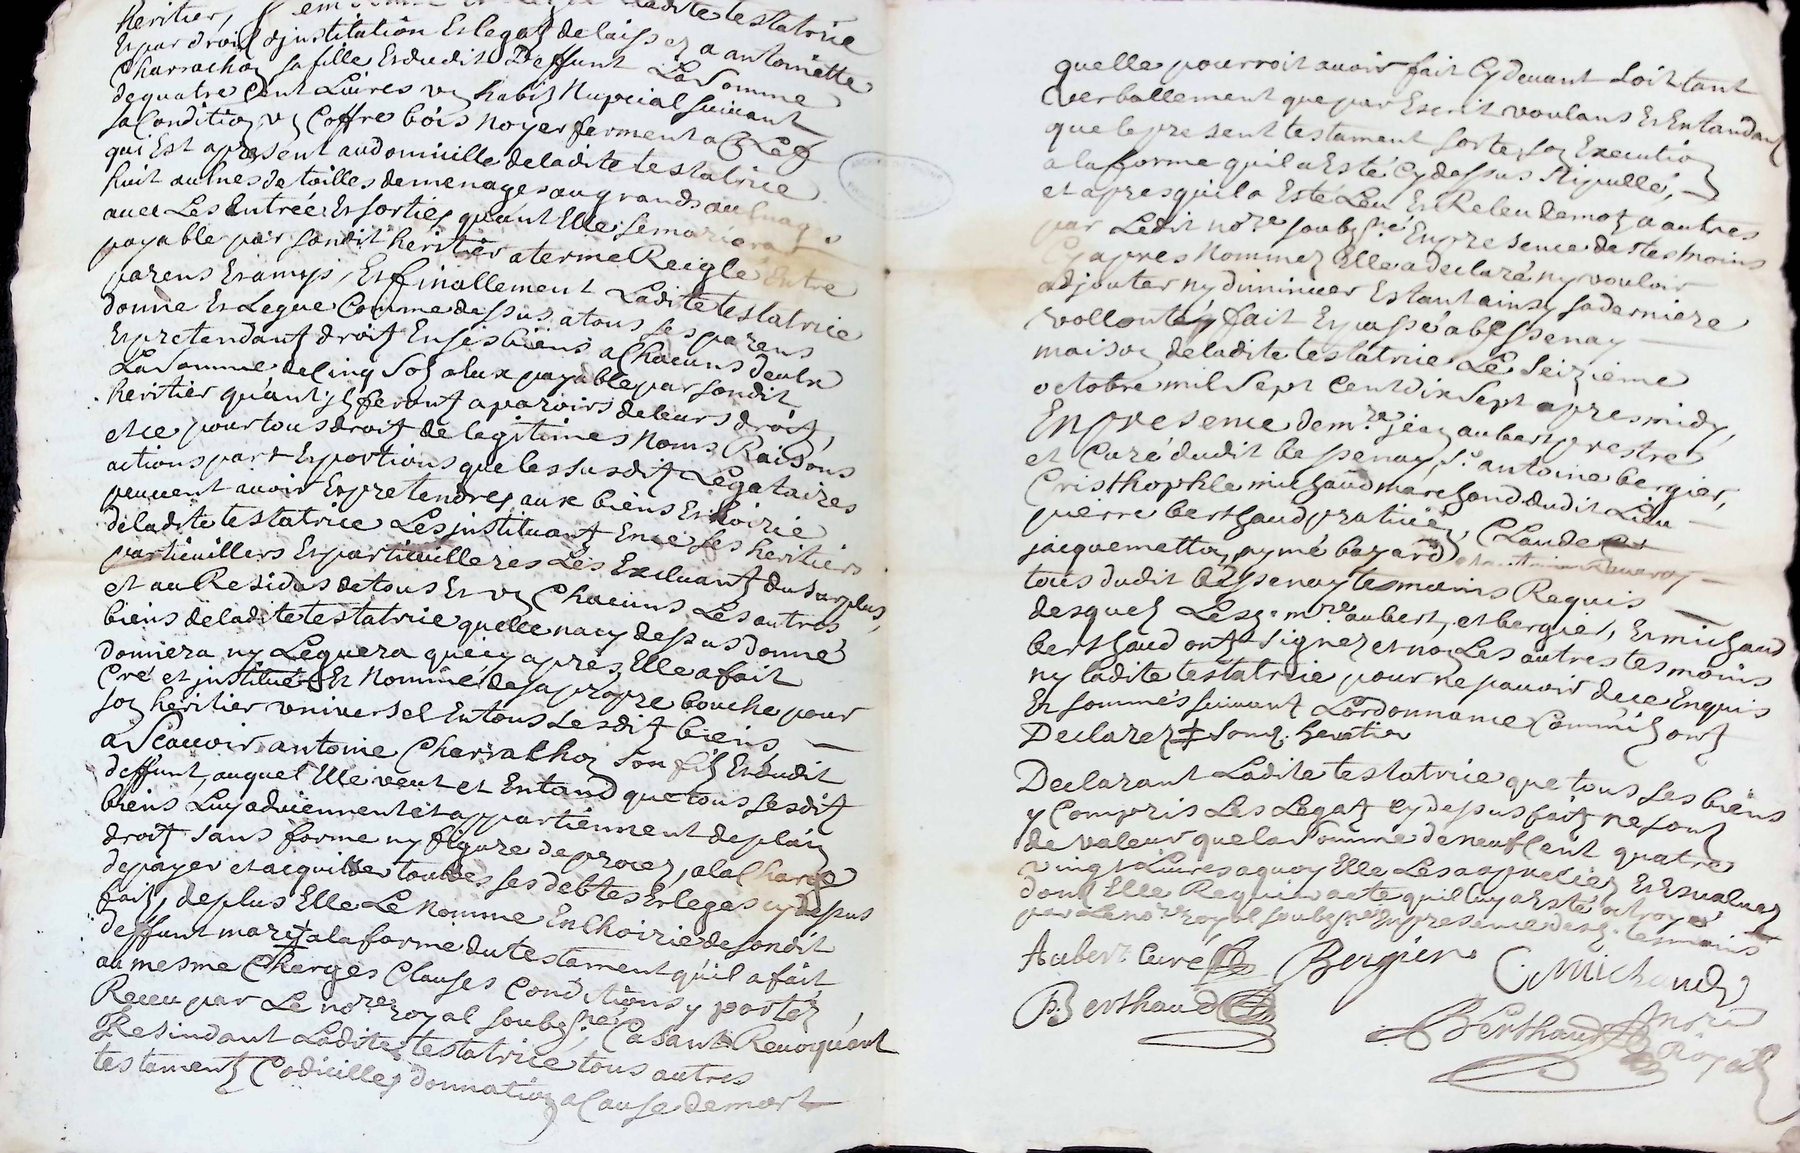 heritier, ladite testatrice
Et par droit djnstitution Et legat delaissez a antoinette
Charrachon sa fille Et dudit Deffunt La Somme
de quatre Cent Livres vn habit Nupcial suivant
sa Condition, vn Coffre bois noyer ferment a Clef
qui Est apresent au domicille de ladite testatrice
huit aulnes de toilles de menages au grands aulnage
avec Les Entrées Et sorties quant Elle se mariera
payable par sondit heritier a terme Reiglé Entre
parens Et amys, Et finallement Ladite testatrice
donne Et Legue Comme dessus a tous ses parens
Et pretendant droit En ses biens a Chacuns deulx
La Somme de Cinq Solz a Eux payable par sondit
heritier quant jlz feront aparoirs de leurs droit,
et ce pour tous droit de legitimes Noms Raisons
actions part Et portions que les susdit Legataires
peuvent avoir Et pretendres aux biens Et hoirie
de ladite testatrice Les jnstituant En ce ses heritiers
particuillers Et particuilleres Les Excluant du surplus,
et au Residus de tous Et vn Chacuns Les autres
biens de ladite testatrice quelle na cy dessus donné
donnera ny Leguera que cy apres, Elle a fait
Cré et jnstitué Et Nommé de sa propre bouche pour
son heritier vniversel En tous sesdit biens
a Scavoir antoine Charrachon son filz Et dudit
deffunt, auquel Elle veut et Entand que tous sesdit
biens Luy adviennent et appartiennent de plain
droit sans forme ny figure de procez, a la Charge
de payer et acquitter touttes ses debtes Et leges cy dessus
fait, de plus Elle Le Nomme En Lhoirie de sondit
deffunt mary a la forme du testament qu'il a fait
au mesme Charges Clauses Conditions y portéz
Receu par Le nore royal soubzsné, Casant Revoquant
Resindant Ladite testatrice tous autres
testament Codicilles donnation a Cause de mort
quelle pourroit avoir fait Cy devant soit tant
verballement que par Escrit voulans Et Entandant
que le present testament sorte son Execution
a la fforme quil a Esté Cy dessus stipullé,
et apres quil a Esté Leu Et Releu de mot a autres
par Ledit nore soubzsné En presence des tesmoins
Cy apres Nommez Elle a declaré ny vouloir
adjouter ny diminuer Estant ainsy sa derniere
vollonté, fait Et passé a bessenay
maison de ladite testatrice Le Seizieme
octobre mil Sept Cent dix Sept apres midy,
En presence de mre jean aubert prestre
et Curé dudit bessenay, Sr antoine bergier,
Cristhophle michaud marchand dudit Lieu
pierre berthaud praticien, Claude
jacquemetton, pymé bazard
tous dudit bessenay tesmoins Requis
desquelz Lesd. mre aubert, et bergier, Et michaud
berthaud ont signez et non Les autres tesmoins
ny ladite testatrice pour ne scavoir de ce Enquis
Et sommés suivant Lordonnance Comme jlz ont
Declarez
Declarant Ladite testatrice que tous ses biens
y Compris Les Legat cy dessus fait ne sont
de valeur que la Somme de neuf Cent quatre
vingt Livres a quoy Elle Les a apreciez Et Evaluez
dont Elle Requier acte quil luy a Esté octroyé
par Le nore royal soubzsné En presence desd. tesmoins
Aubert Curé Bergier C Michaud
P. Berthaud Berthaud Nore Royal